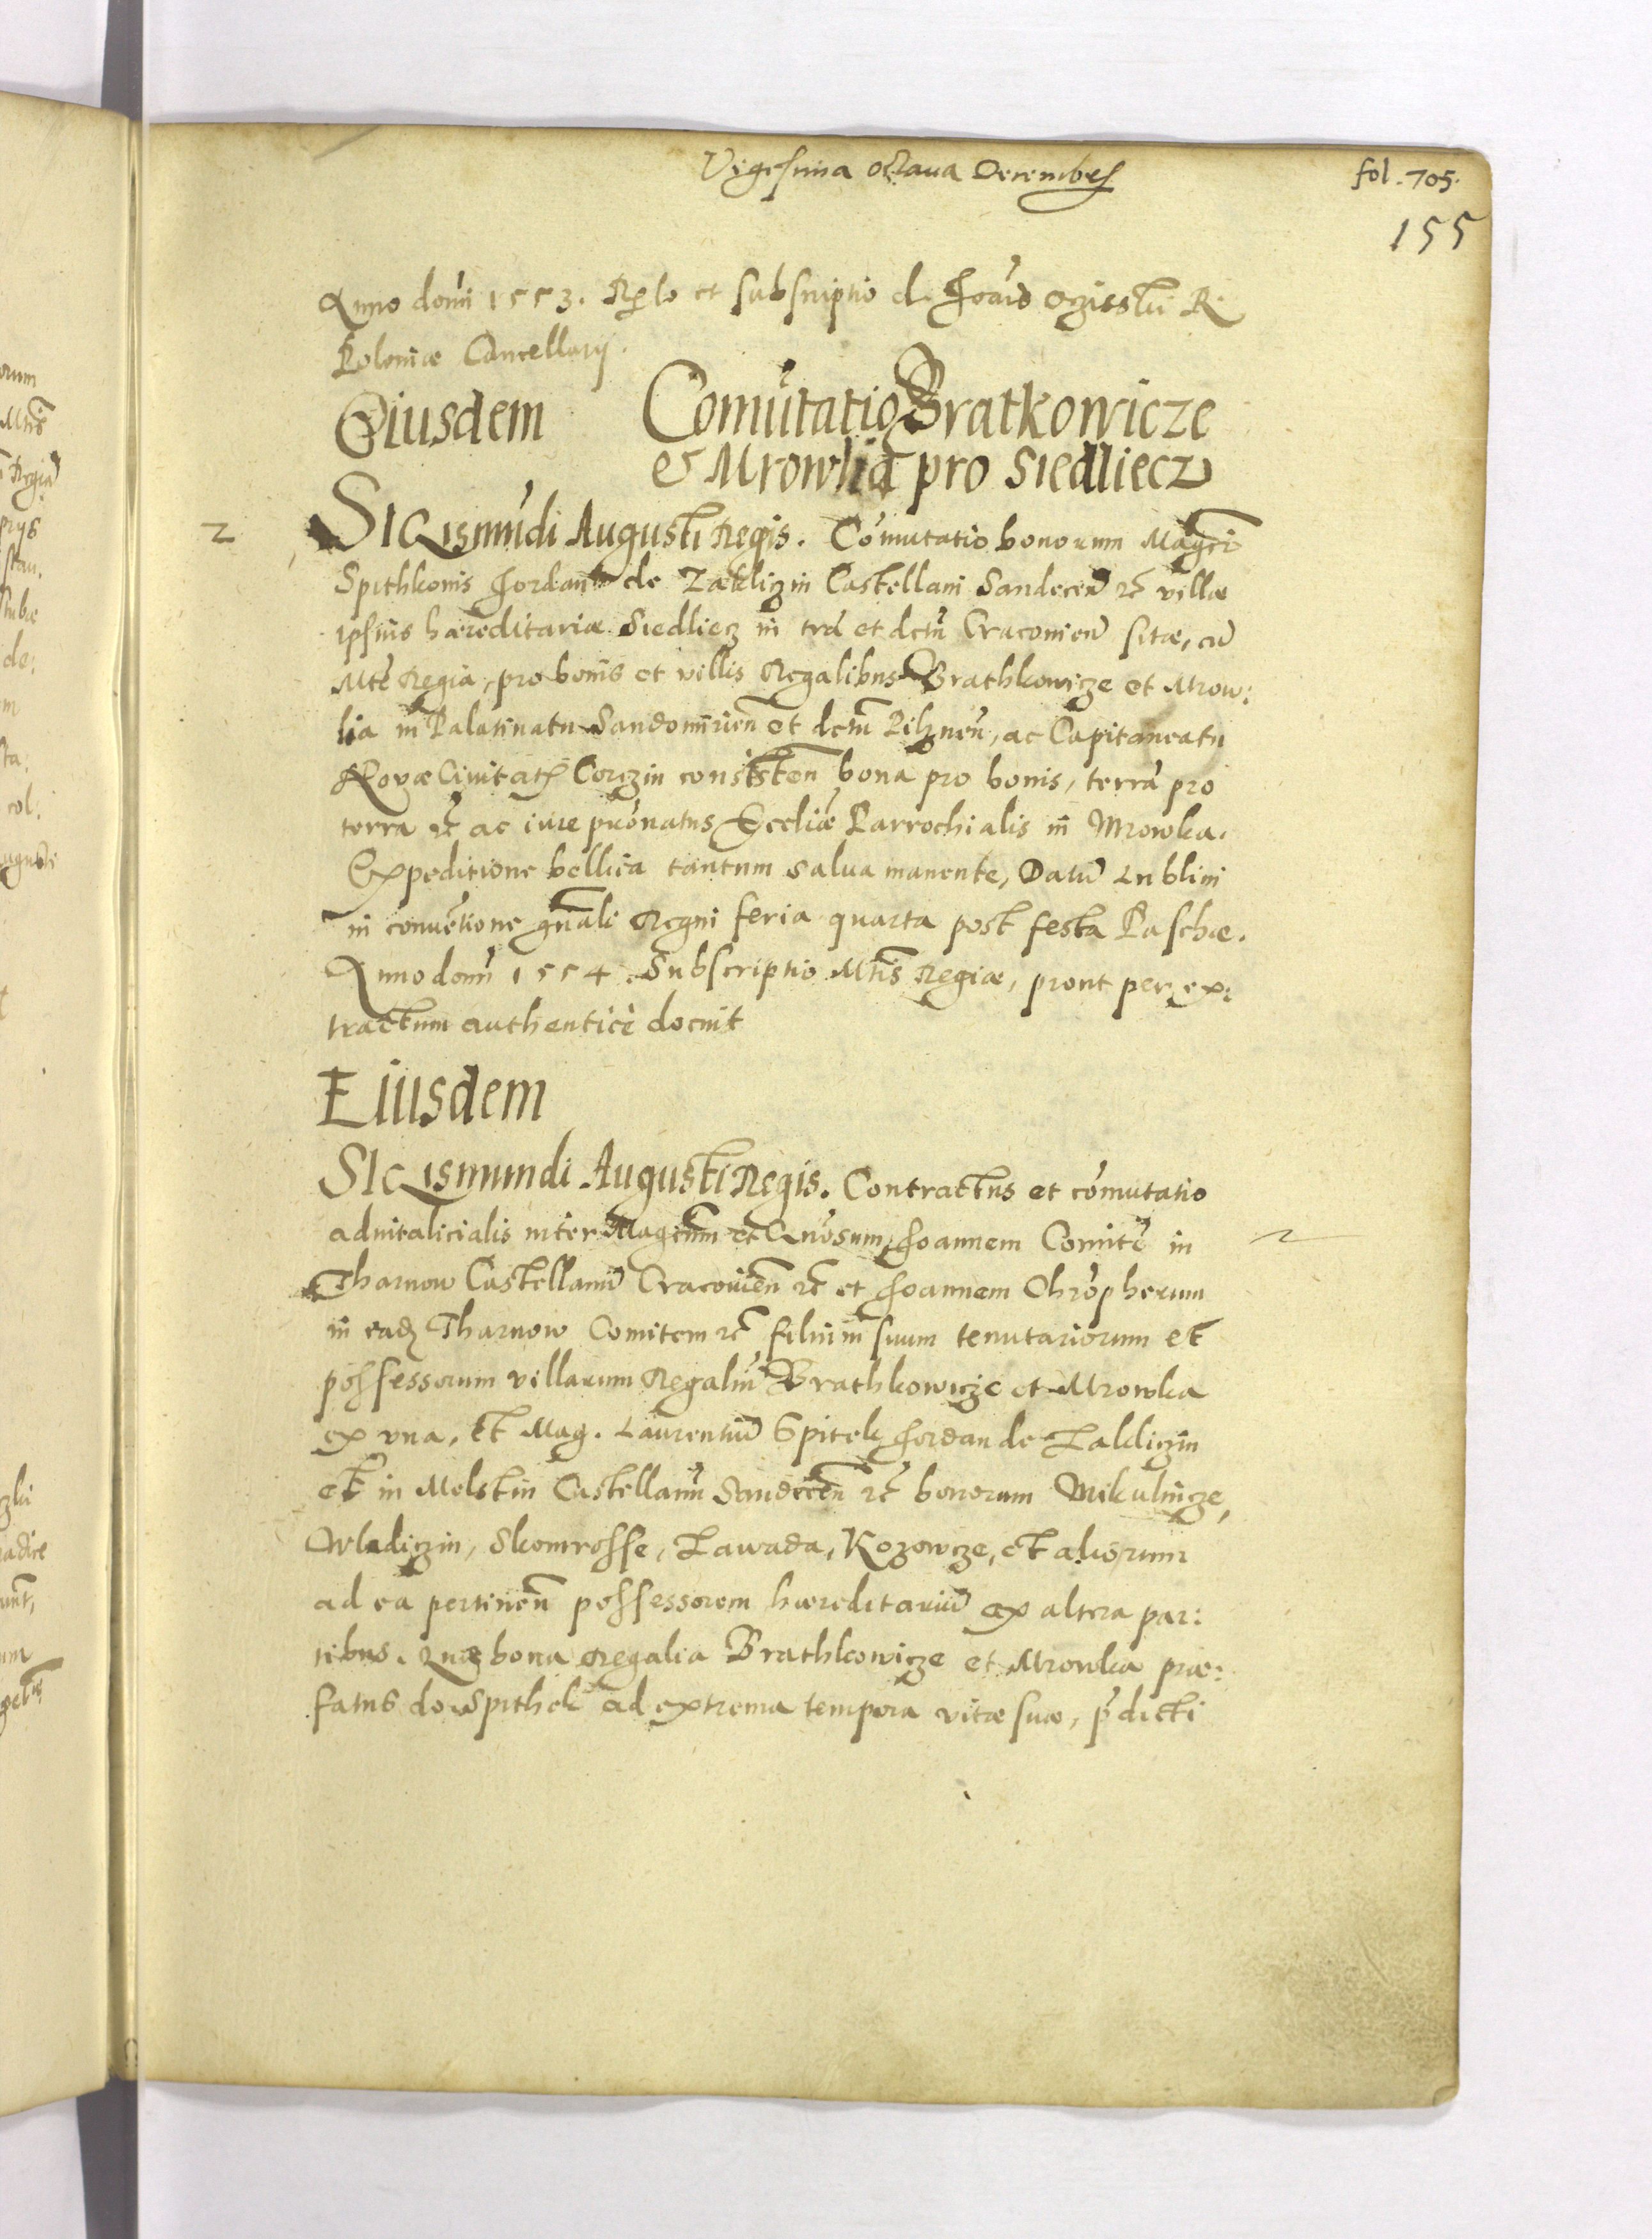 Vigesima octaua Decembris
fol. 705.
155
Anno domi 1553. Rlo et subscriptio d. Joanis Oczisski R.
Poloniæ Cancellarij.
Eiusdem Comutatio Bratkowicze
et Mrowlia pro Siedliecz
2 Sigismundi Augusti Regis. Comutatio bonorum Magci
Spithkonis Jordan de Zakliczin Castellani Sandecen etc villæ
ipsius hæreditariæ Siedliecz in tra et dctu Cracovien sitæ, cu
Mte Regia, pro bonis et villis Regalibus Brathkowicze et Mrow:
lia in Palatinatu Sandomirien et dctu Pilznen, ac Capitaneatu
Novæ Civitatis Corczin consisten bona pro bonis, terra pro
terra etc ac iure pronatus Eccliæ Parrochialis in Mrowka.
Expeditione bellica tantum salua manente, Datu Lublini
in conventione gnali Regni feria quarta post festa Paschæ.
Anno domi 1554. Subscriptio Mtis Regiæ, prout per ex:
tractum authenticè docuit
Eiusdem
Sigismundi Augusti Regis. Contractus et comutatio
aduitalicialis inter Magcum et Gnosum Joannem Comite in
Tharnow Castellanu Cracovien etc et Joannem Chropherum
in eadz Tharnow Comitem etc filium suum tenutariorum et
possessorum villarum Regaliu Brathkowicze et Mrowka
ex una, et Mag. Laurentiu Spitek Jordan de Zakliczin
et in Melstin Castellanu Sandecen etc bonorum Mikulincze,
Wladiczin, Skomrosse, Zawada, Kozowcze, et aliorum
ad ea pertinen possessorem hæreditariu ex altera par:
tibus. Quæ bona Regalia Brathkowicze et Mrowka præ:
fatus do Spithek ad extrema tempora vitæ suæ, pdicti